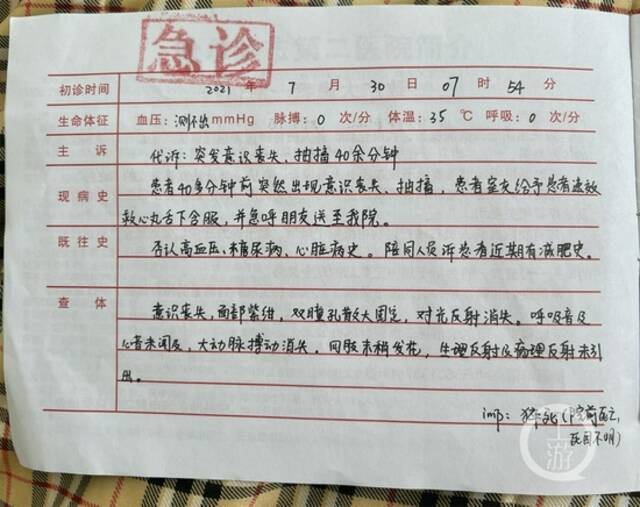 急诊
初诊时间 2021 年 7 月 30 日 07 时 54 分
生命体征 血压: 测不出 mmHg 脉搏: 0 次/分 体温: 35 ℃ 呼吸: 0 次/分
主诉 代诉: 突发意识丧失、抽搐40余分钟
患者40多分钟前突然出现意识丧失、抽搐, 患者室友给予患者速效
现病史 救心丸舌下含服, 并急呼朋友送至我院。
既往史 否认高血压、糖尿病、心脏病史。陪同人员诉患者近期有减肥史。
查体 意识丧失, 面部紫绀, 双瞳孔散大固定, 对光反射消失。呼吸音及
心音未闻及, 大动脉搏动消失。四肢末梢发花, 生理反射及病理反射未引
出。
imp: 猝死(院前死亡,
死因不明)
上游